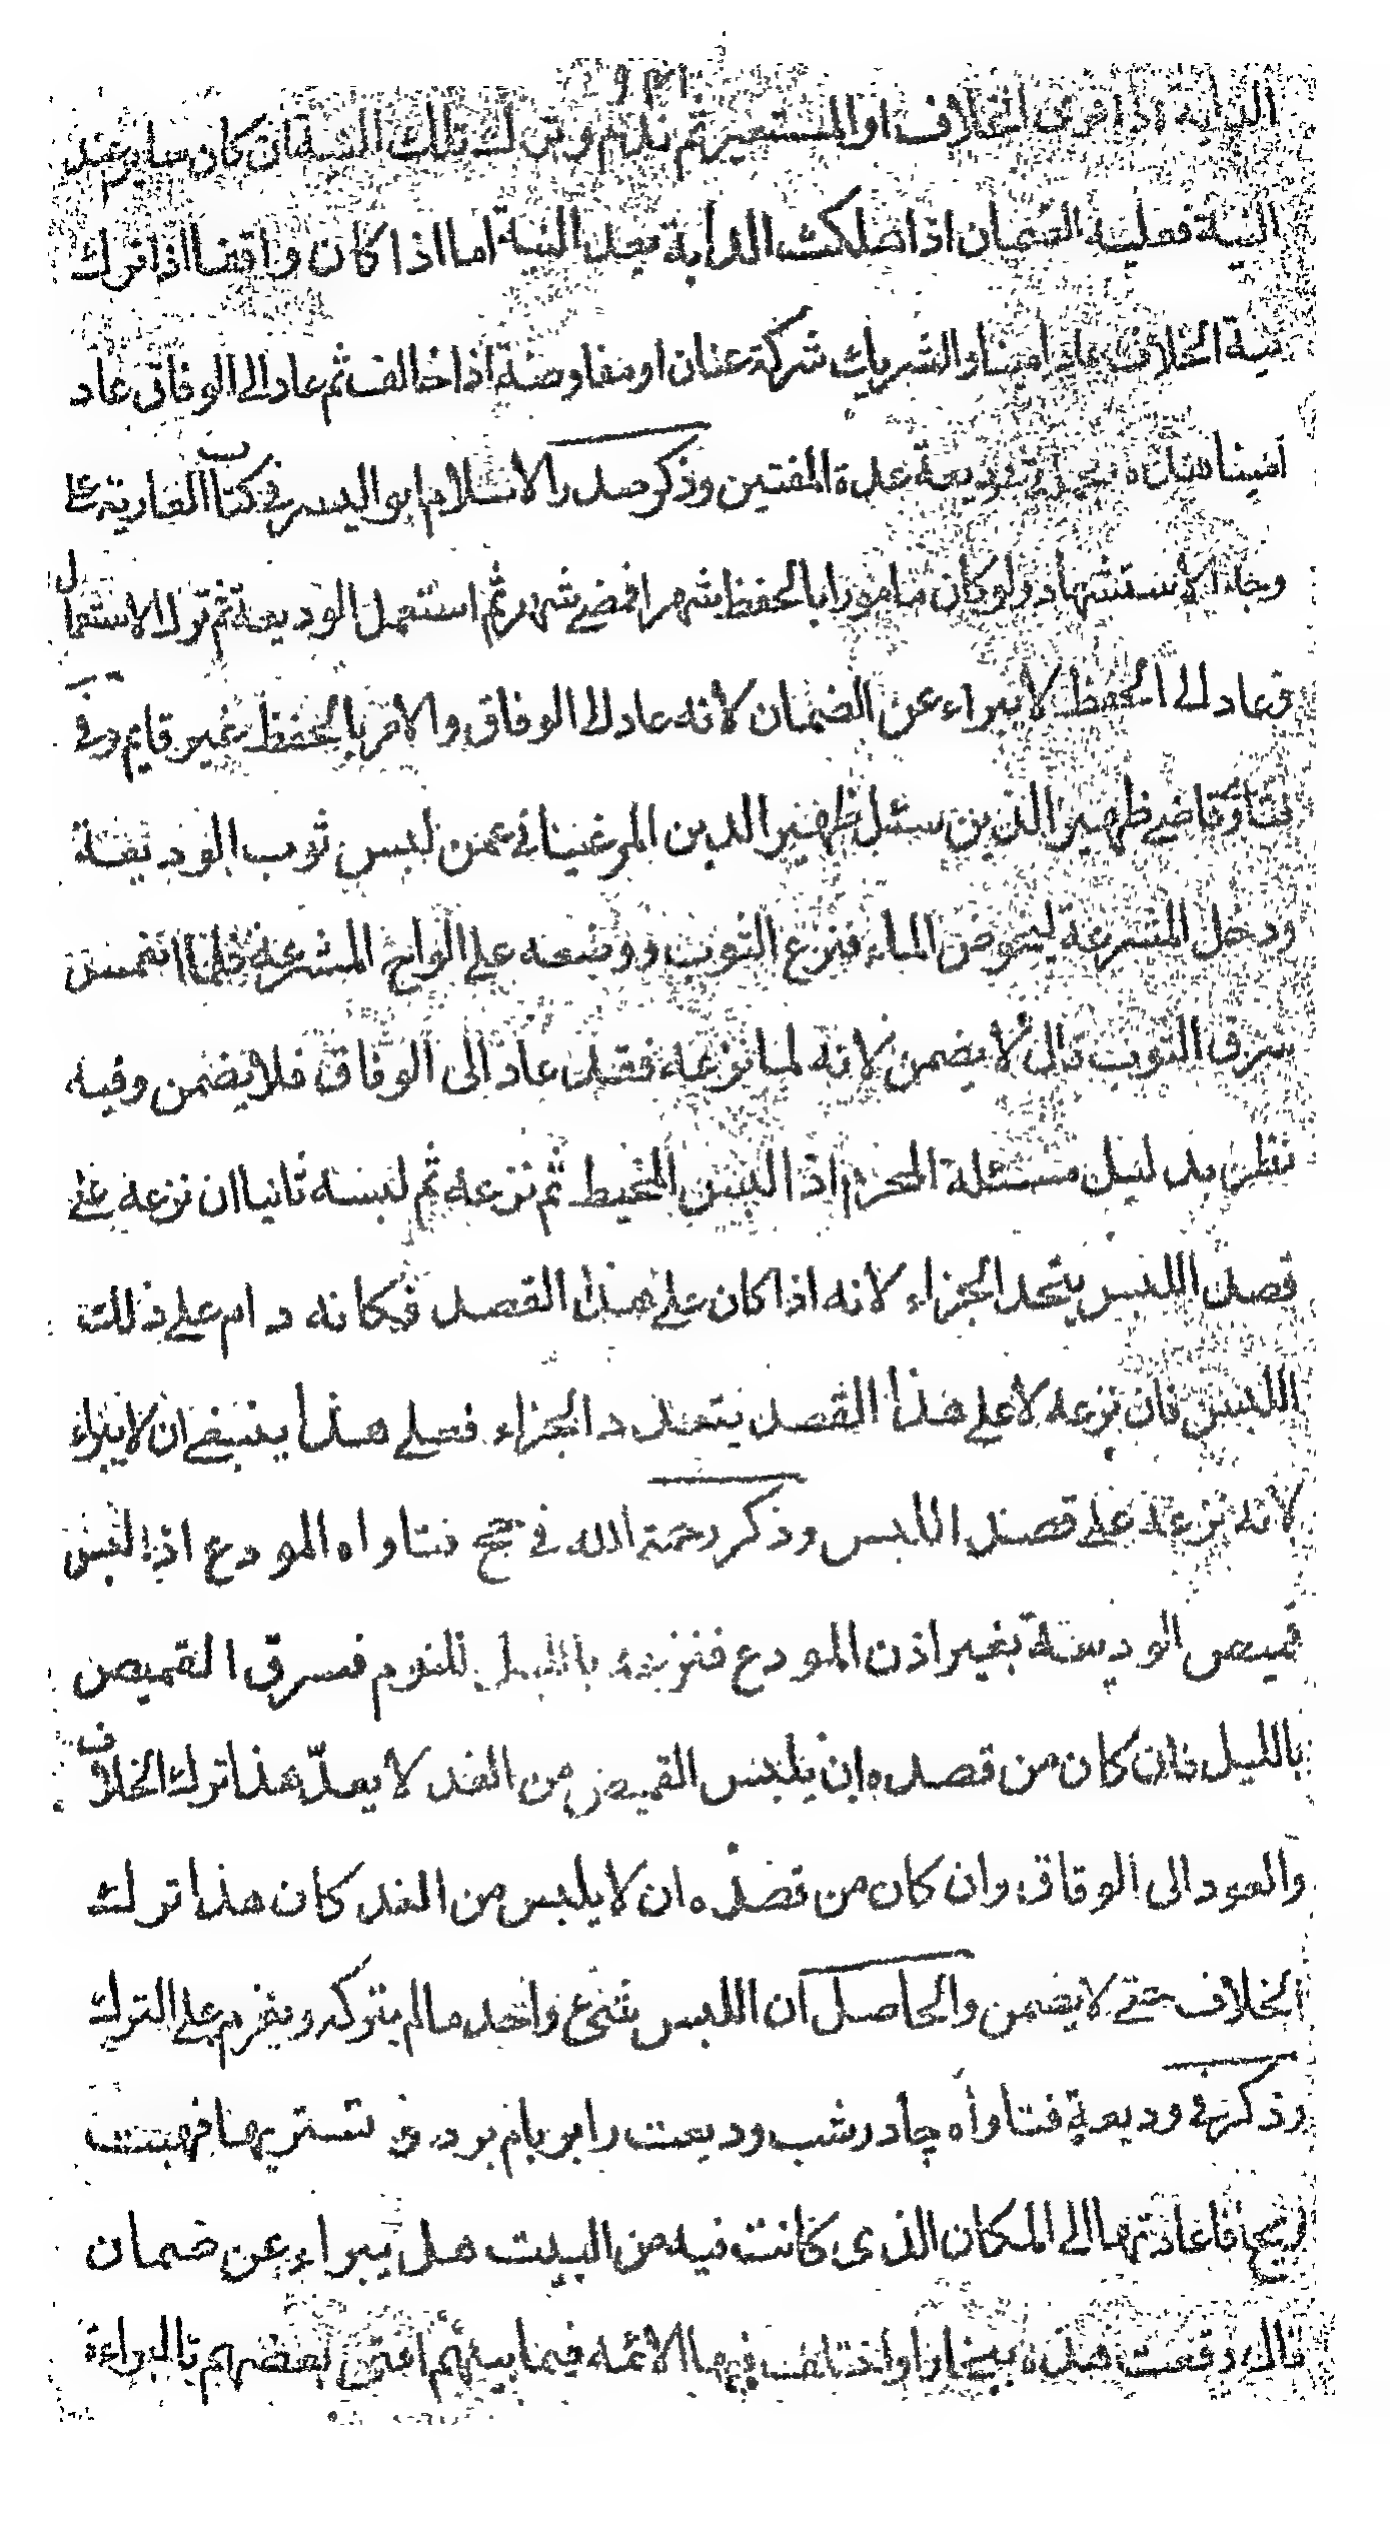 الدابة اذا نوى الخلاف او المستعير ثم ندم وترك تلك ان كان سايرا عند
النية فعليه الضمان اذا هلكت الدابة بعد النية اما اذا كان واقفا اذا ترك
نية الخلاف عاد امينا والشريك شركة عنان او مفاوضة اذا خالف ثم عاد الى الوفاق عاد
امينا هذه وديعة عدة المفتين وذكر صدر الاسلام ابو اليسر في كتاب العارية على
الاستشهاد ولو كان مامورا بالحفظ شهرا فمضى شهر ثم استعمل الوديعة ثم ترك الاستعمال
وعاد الى الحفظ لا يبراء عن الضمان لانه عاد الى الوفاق والامر بالحفظ غير قايم وفي
فتاوى قاضي ظهير الدين سئل ظهير الدين المرغيناني عمن لبس ثوب الوديعة
ودخل المشرعة ليخوض الماء فنزع الثوب ووضعه على الواح المشرعة فلما انغمس
سرق الثوب قال لا يضمن لانه لما نزعه فقد عاد الى الوفاق فلا يضمن وفيه
نظر بدليل مسئلة المحرم اذا لبس المخيط ثم نزعه ثم لبسه ثانيا ان نزعه على
قصد اللبس يتحد الجزاء لانه اذا كان على هذا القصد فكانه دام على ذلك
اللبس فان نزعه لا على هذا القصد يتعدد الجزاء فعلى هذا ينبغي ان لا يبراء
لانه نزعه على قصد اللبس وذكر رحمة الله في حج فتاواه المودع اذا لبس
قميص الوديعة بغير اذن المودع فنزعه بالليل للنوم فسرق القميص
بالليل فان كان من قصده ان يلبس القميص من الغد لا يعدّ هذا ترك الخلاف
والعود الى الوفاق وان كان من قصده ان لا يلبس من الغد كان هذا ترك
الخلاف حتى لا يضمن والحاصل ان اللبس شيء واحد ما لم يتركه ويعزم على الترك
وذكر في وديعة فتاواه چادر شب وديعت را بر بام برد و تستر بها فهبت
ريح فاعادتها الى المكان الذي كانت فيه من البيت هل يبراء عن ضمان
قال وقعت هذه ببخارا واختلف فيها الائمة فيما بينهم افتى بعضهم بالبراءة